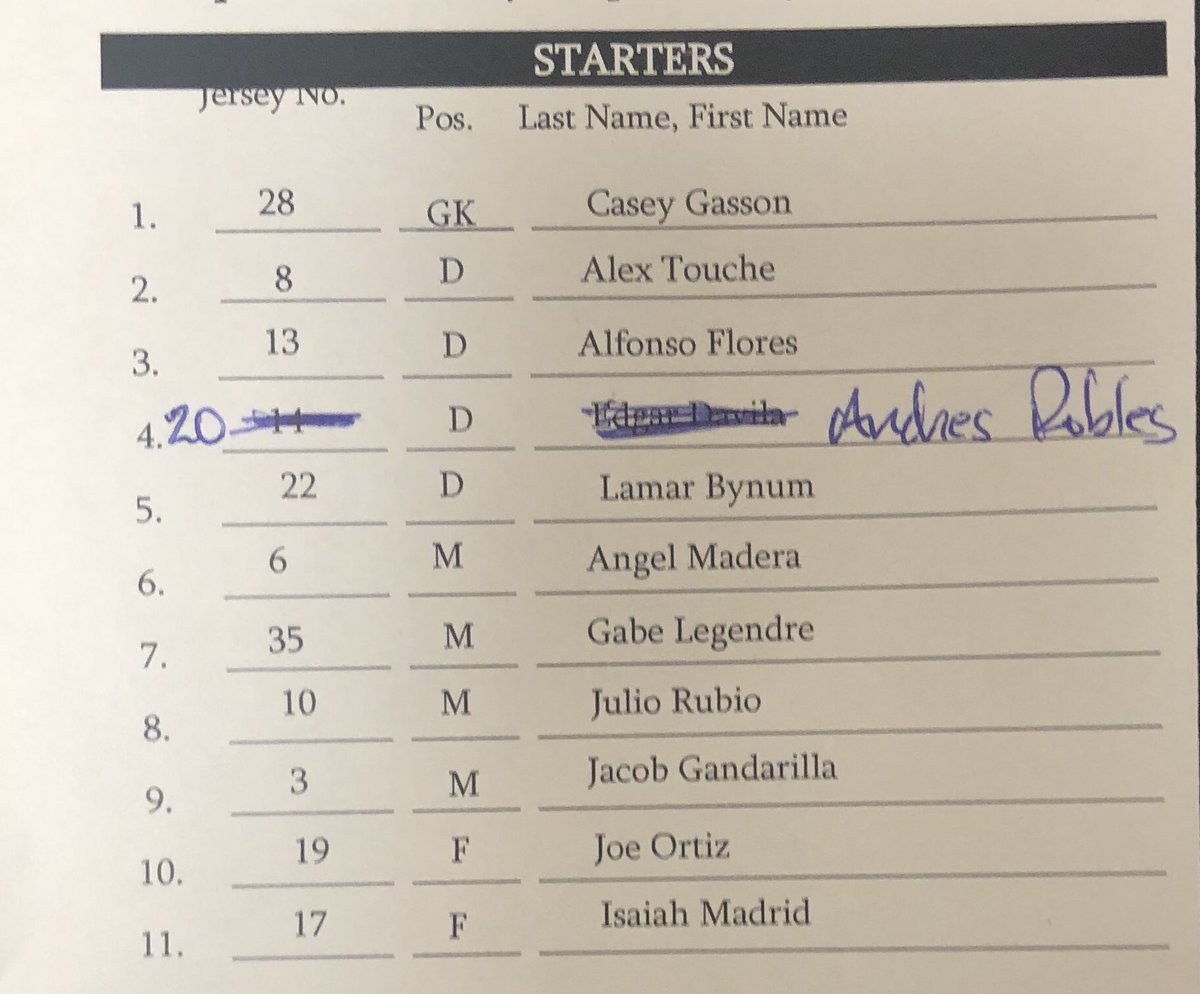 STARTERS
Jersey No. Pos. Last Name, First Name
1. 28 GK Casey Gasson
2. 8 D Alex Touche
3. 13 D Alfonso Flores
4. 20 14 D Edgar Davila Andres Robles
5. 22 D Lamar Bynum
6. 6 M Angel Madera
7. 35 M Gabe Legendre
8. 10 M Julio Rubio
9. 3 M Jacob Gandarilla
10. 19 F Joe Ortiz
11. 17 F Isaiah Madrid